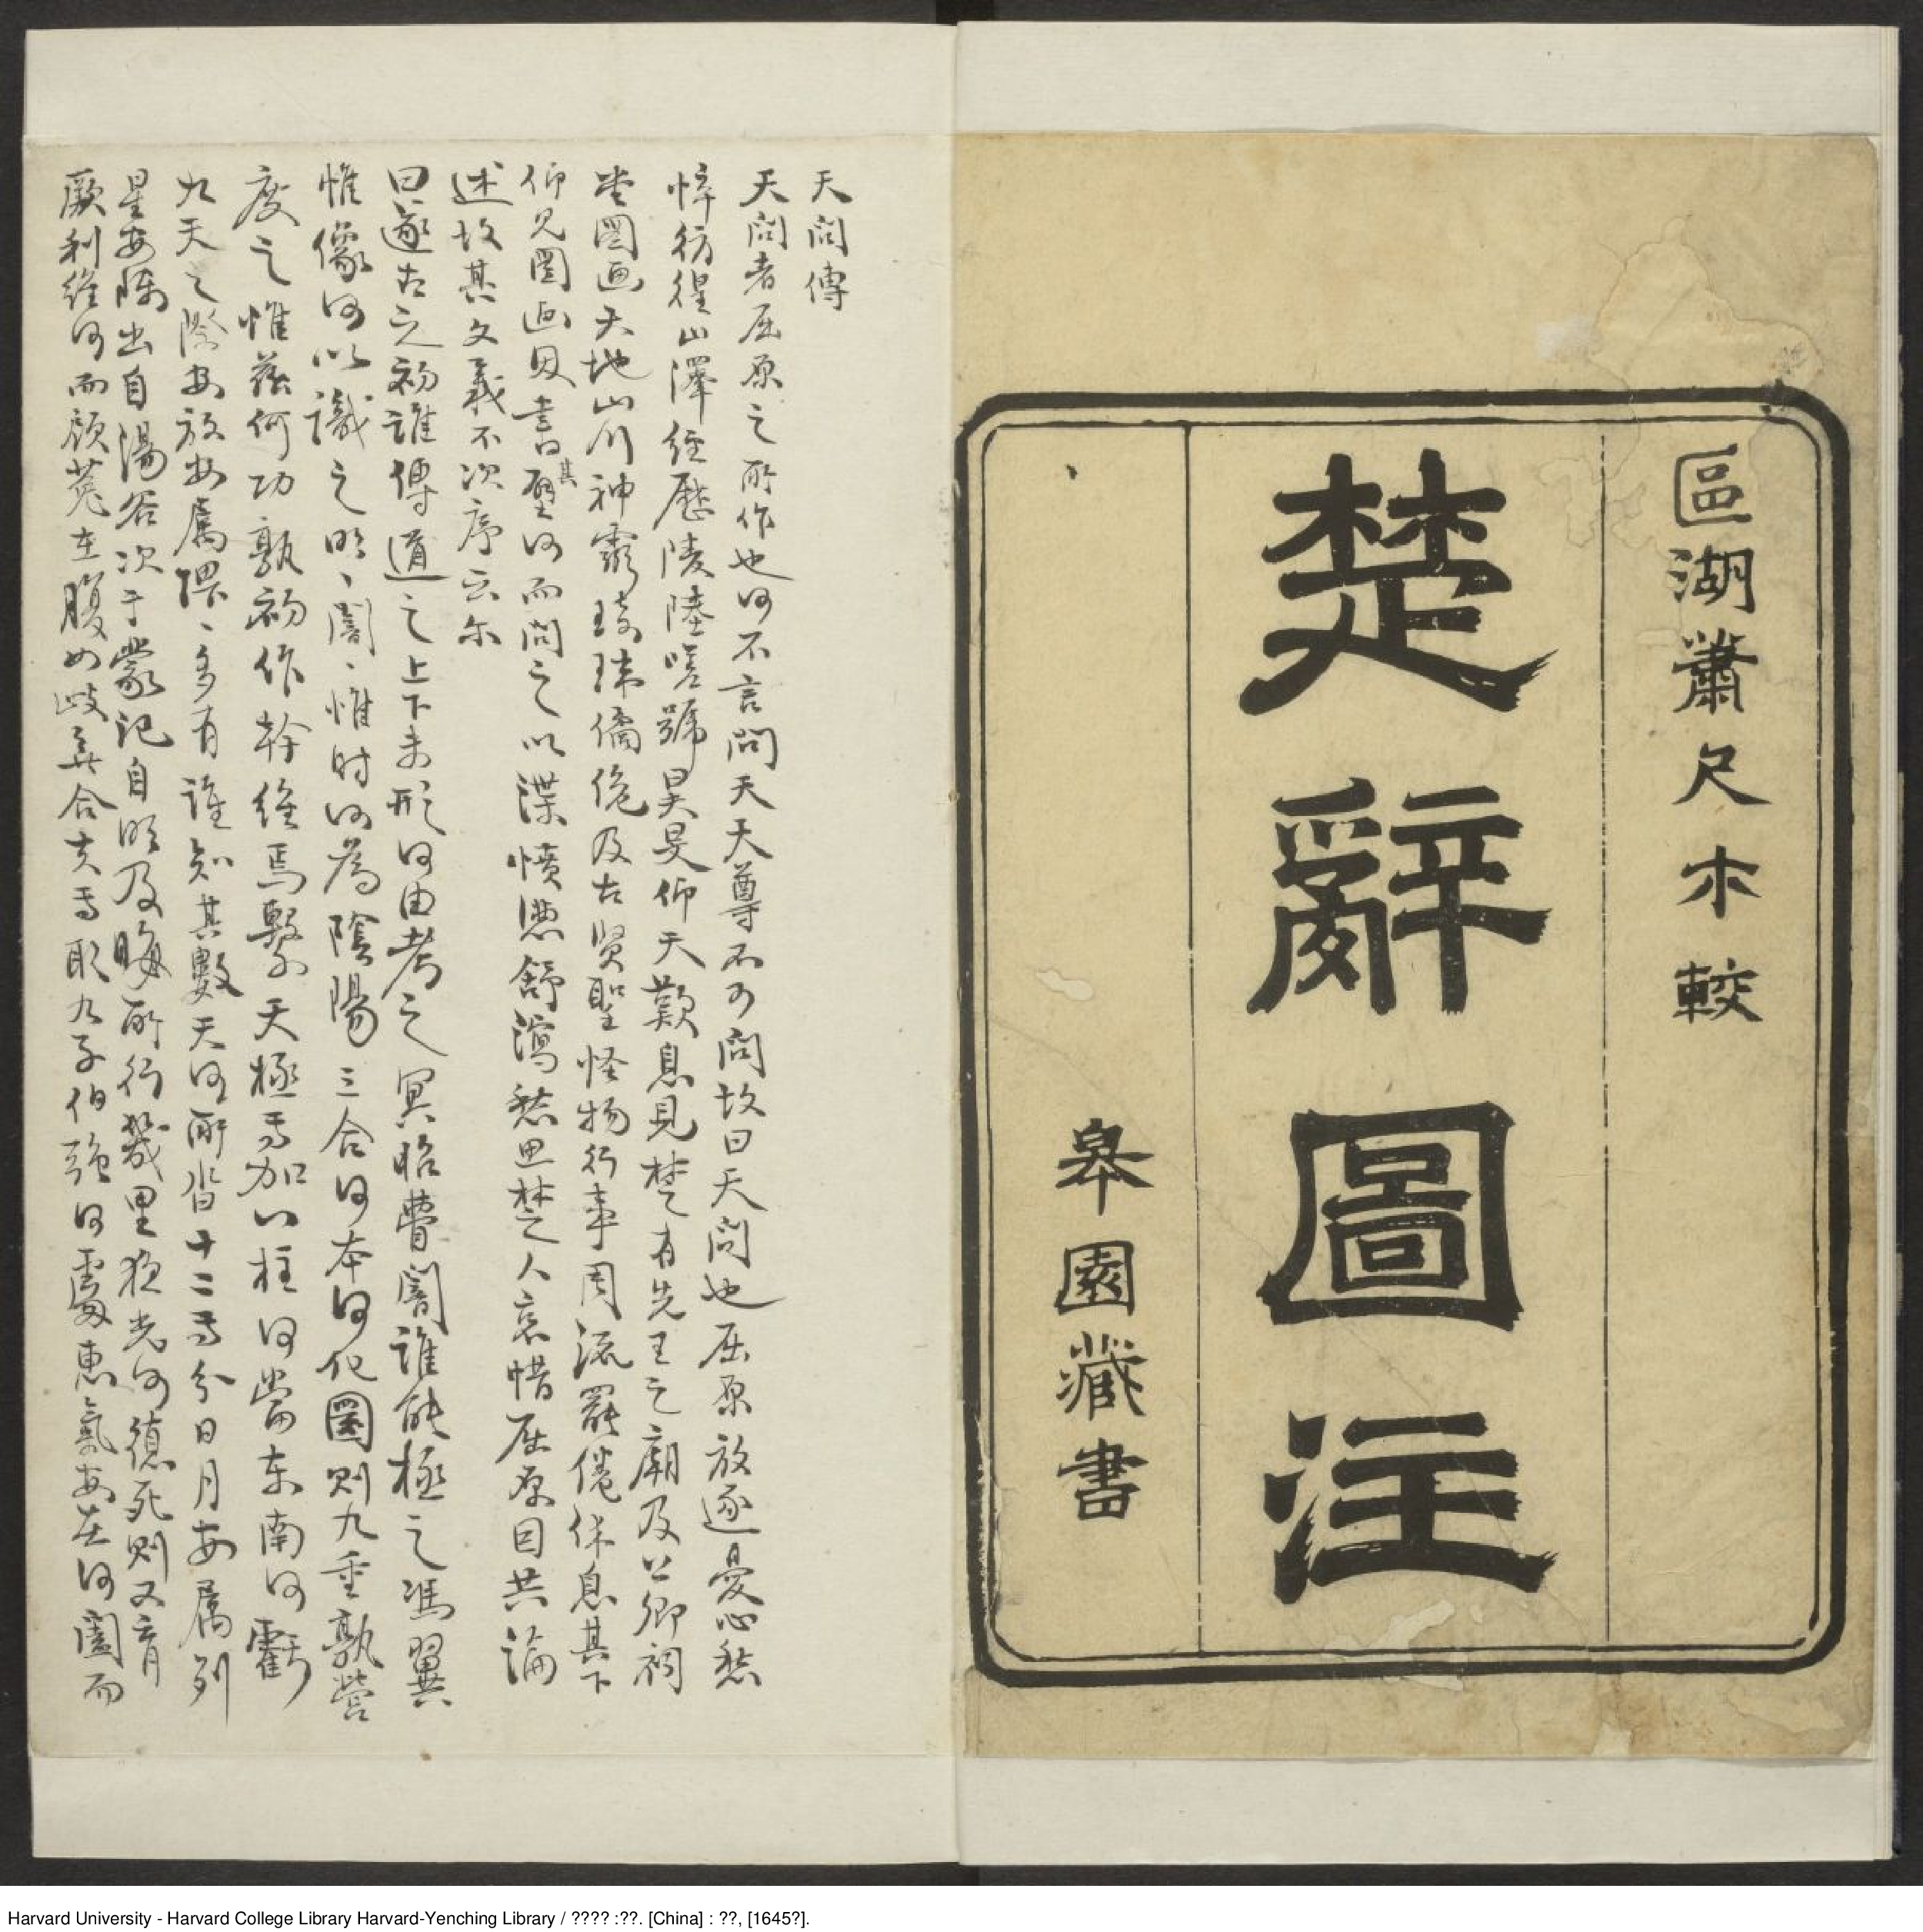 區湖蕭尺木較
楚辭圖注
皋園藏書
天問傳
天問者屈原之所作也何不言問天天尊不可問故曰天問也屈原放逐憂心愁
悴彷徨山澤經歷陵陸嗟號昊旻仰天歎息見楚有先王之廟及公卿祠
堂圖画天地山川神靈琦瑋僑佹及古賢聖怪物行事周流罷倦休息其下
仰見圖画因書其壁何而問之以渫憤懣舒瀉愁思楚人哀惜屈原因共論
述故其文義不次序云尔
曰遂古之初誰傳道之上下未形何由考之冥昭瞢闇誰能極之馮翼
惟像何以識之明、闇、惟时何為陰陽三合何本何化圜则九重孰營
度之惟茲何功孰初作斡維焉繫天極焉加八柱何當东南何虧
九天之際安放安屬隈、多有誰知其數天何所沓十二焉分日月安属列
星安陳出自湯谷次于蒙汜自明及晦所行幾里夜光何德死则又育
厥利維何而顾菟在腹女歧無合夫焉取九子伯强何處惠氣安在何闔而
Harvard University - Harvard College Library Harvard-Yenching Library / ???? :??. [China] : ??, [1645?].